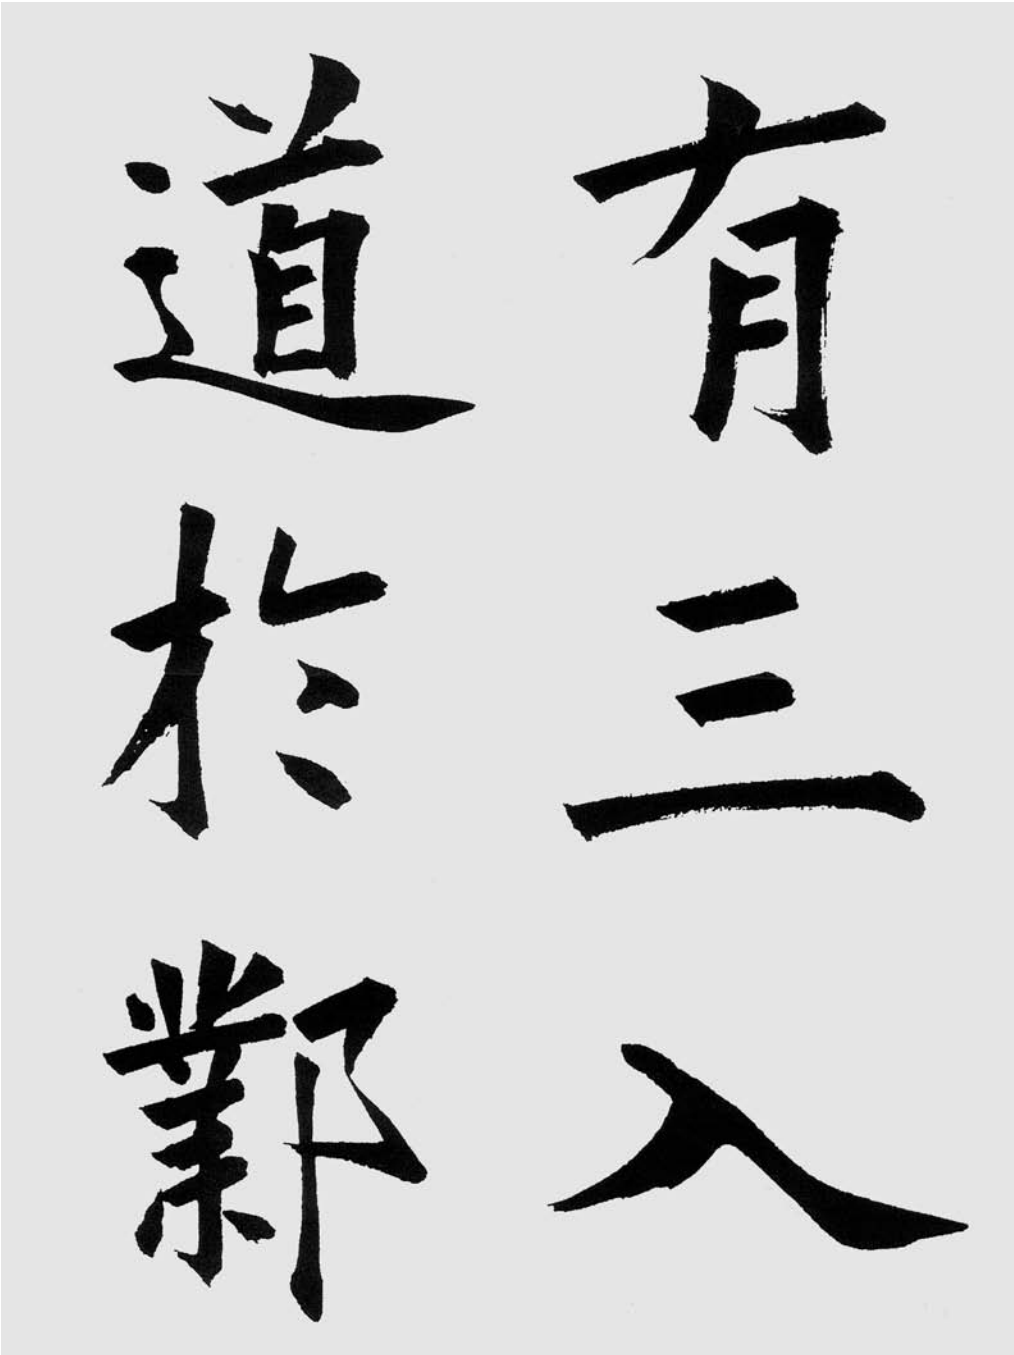 有三入
道於鄴